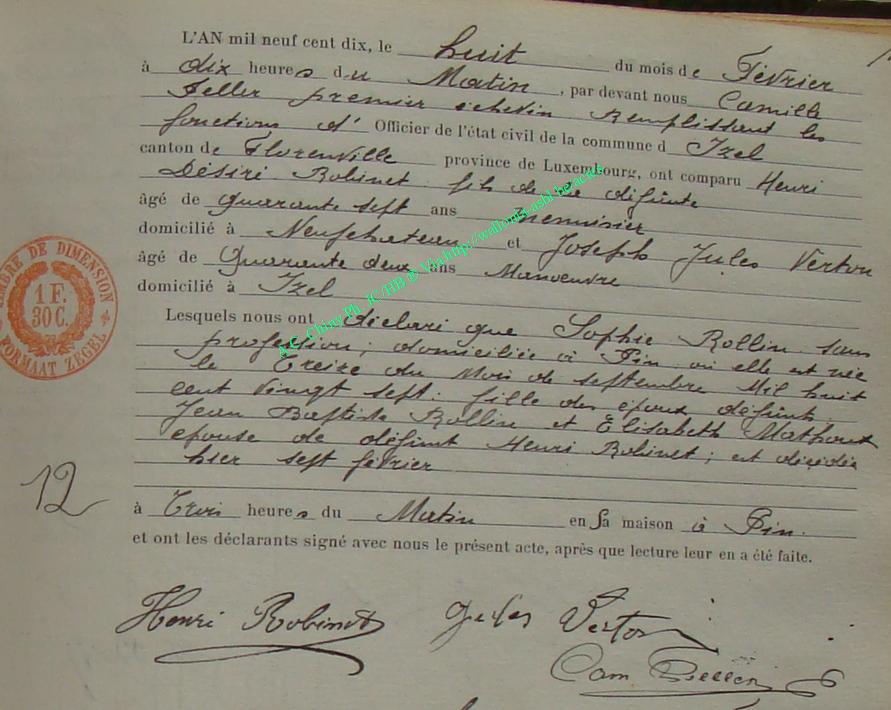 L'AN mil neuf cent dix, le huit du mois de Février
à dix heures du Matin, par devant nous Camille
premier échevin Remplissant les
fonctions d' Officier de l'état civil de la commune d Izel
canton de Florenville province de Luxembourg, ont comparu Henri
Désiré Robinet fils de la défunte
âgé de quarante sept ans menuisier
domicilié à Neufchateau et Joseph Jules Verton
âgé de Quarante deux ans Manoeuvre
domicilié à Izel
Lesquels nous ont déclaré que Sophie Rollin sans
profession; domiciliée à Pin où elle est née
le Treize du Mois de septembre Mil huit
cent Vingt sept. fille des époux défunts
Jean Baptiste Rollin et Elisabeth
épouse de défunt Henri Robinet; est décédée
hier sept février
à Trois heures du Matin en sa maison à Pin.
et ont les déclarants signé avec nous le présent acte, après que lecture leur en a été faite.
12
TIMBRE DE DIMENSION
1 F.
30 C.
FORMAAT ZEGEL
Henri Robinet Jules Verton
Cam